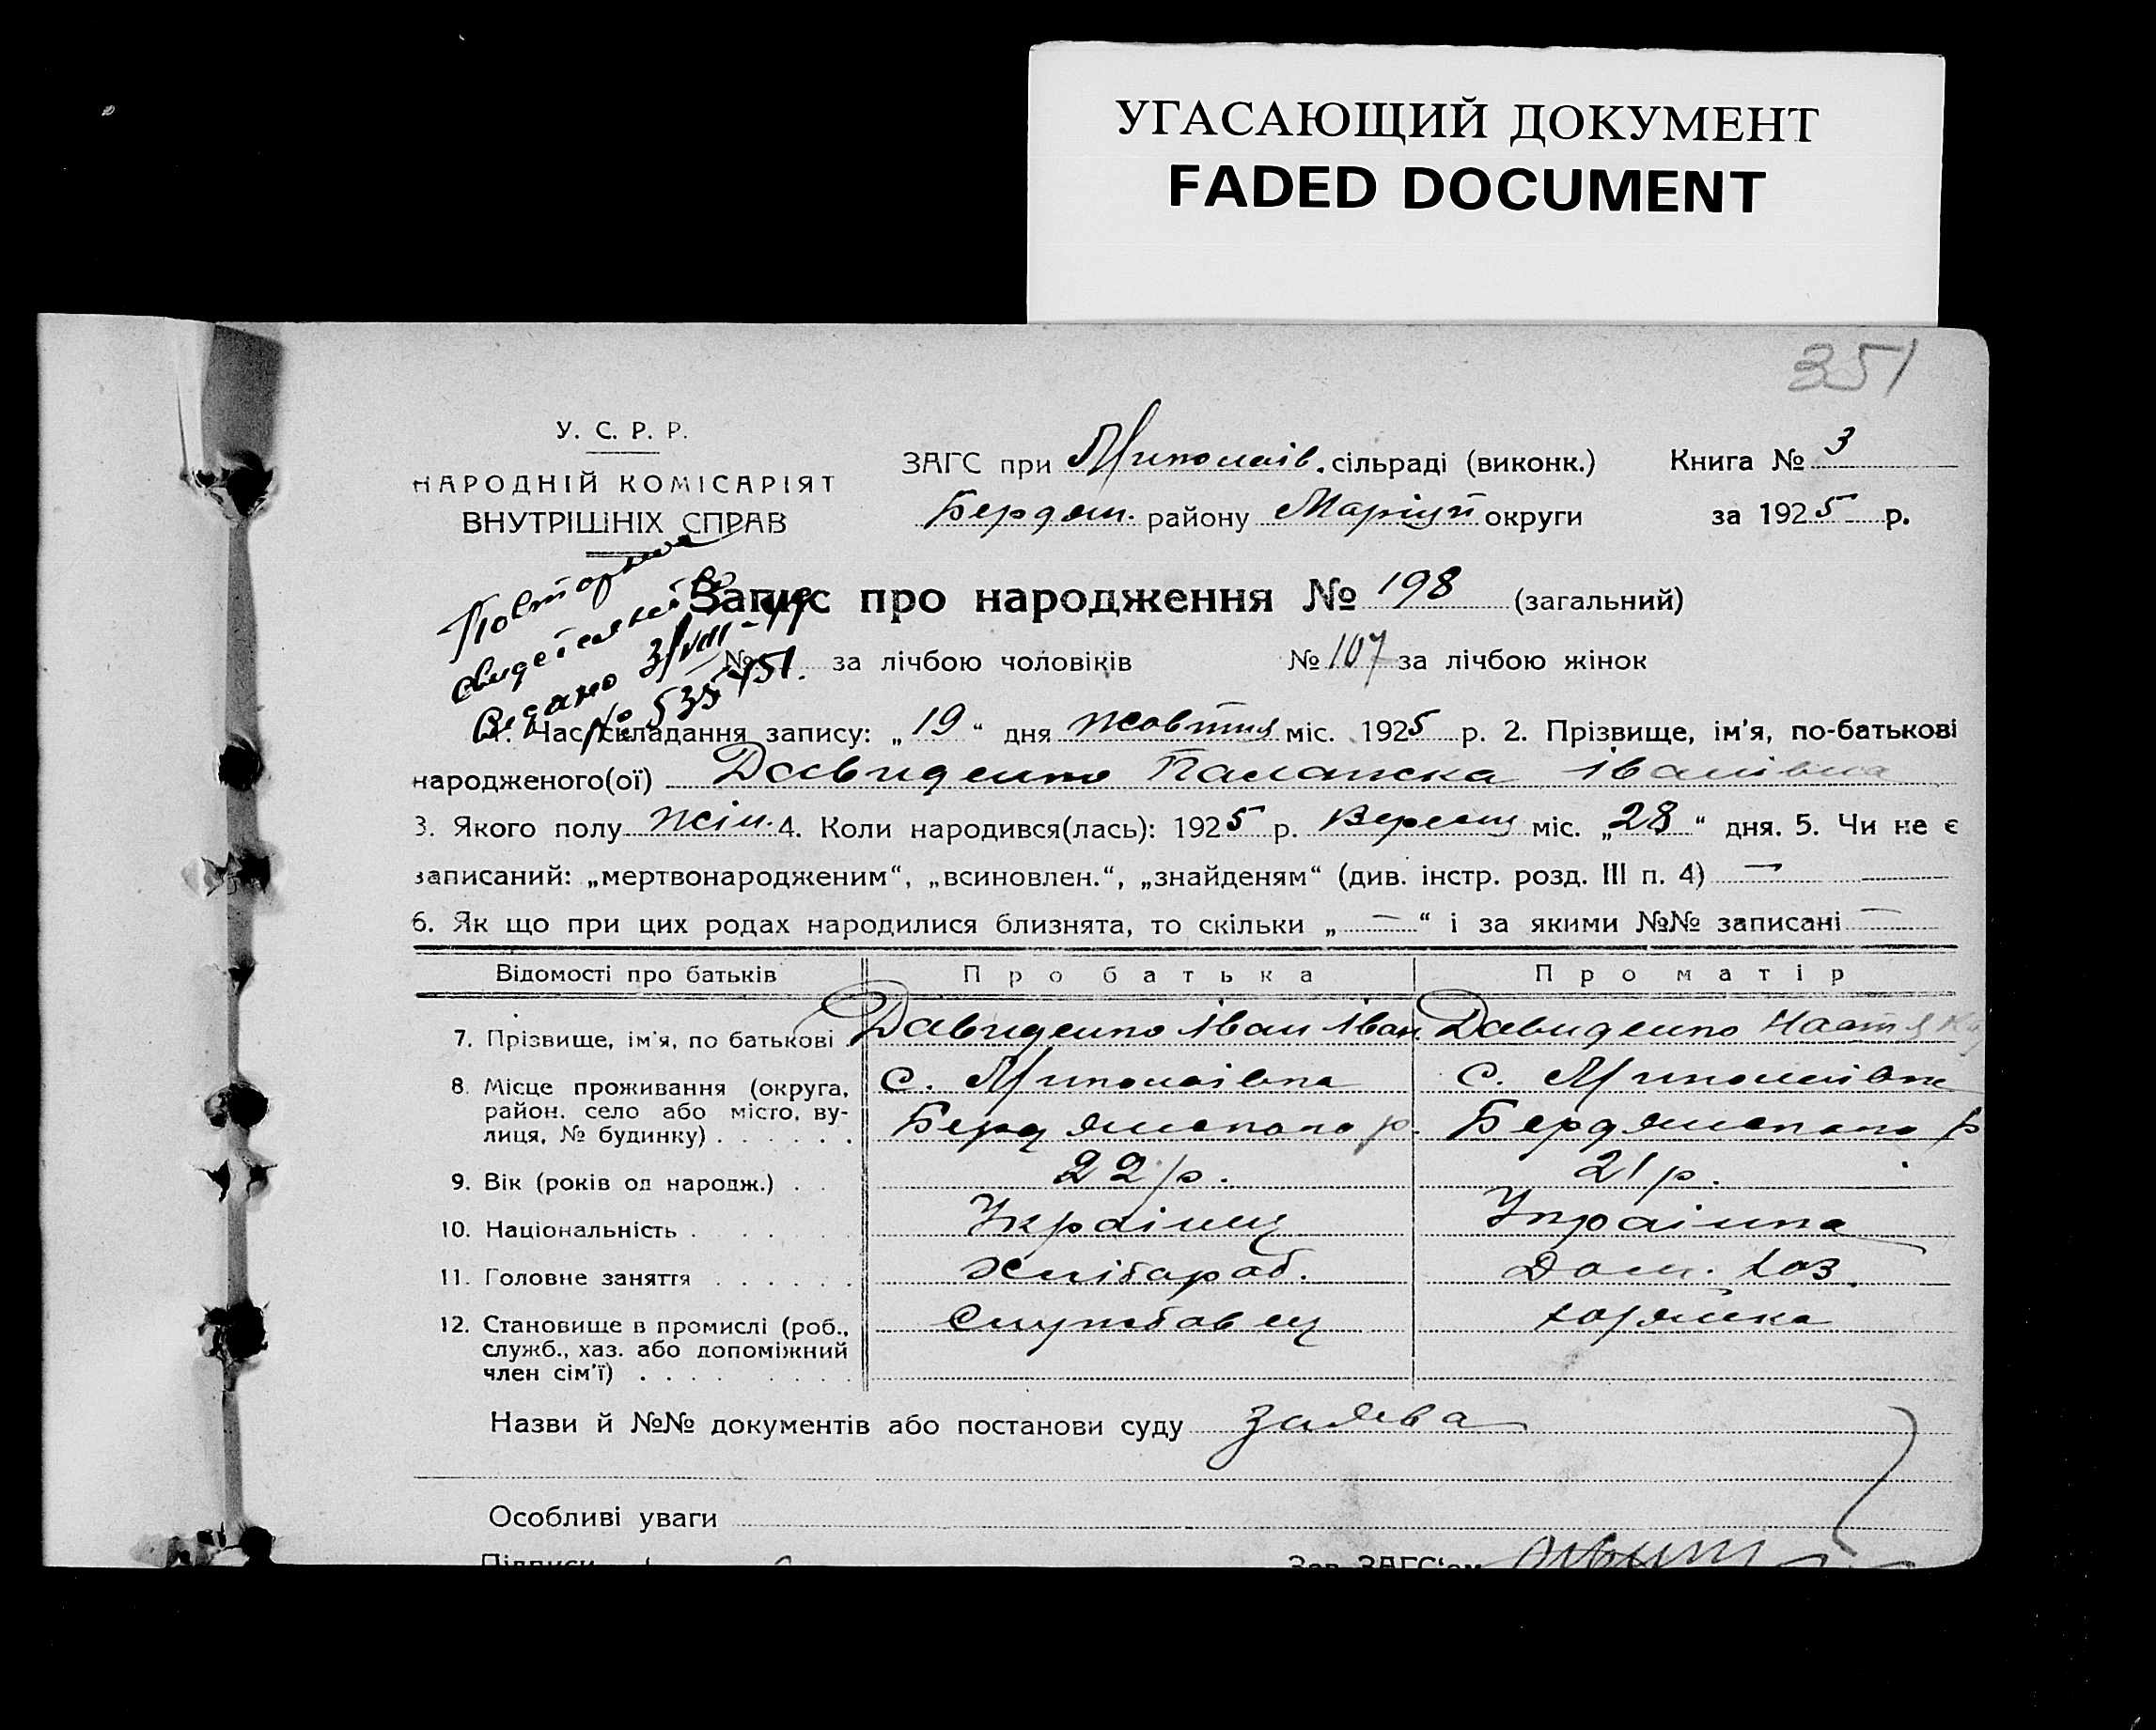 УГАСАЮЩИЙ ДОКУМЕНТ
FADED DOCUMENT
351
У. С. Р. Р.
НАРОДНІЙ КОМІСАРІЯТ
ВНУТРІШНІХ СПРАВ
ЗАГС при Миколаїв. сільраді (виконк.) Книга № 3
Бердян. району Маріуп округи за 1925 р.
Повторне
свидетельство
Видано 3/VIII-49
№ 535451.
Запис про народження № 198 (загальний)
№ за лічбою чоловіків № 107 за лічбою жінок
1. Час складання запису: „19“ дня Жовтня міс. 1925 р. 2. Прізвище, ім'я, по-батькові
народженого(ої) Давиденко Палажка Іванівна
3. Якого полу жін. 4. Коли народився(лась): 1925 р. Вересня міс. „28“ дня. 5. Чи не є
записаний: „мертвонародженим“, „всиновлен.“, „знайденям“ (див. інстр. розд. III п. 4) —
6. Як що при цих родах народилися близнята, то скільки „—“ і за якими №№ записані —
Відомості про батьків Про батька Про матір
7. Прізвище, ім'я, по батькові Давиденко Іван Іван. Давиденко Настя
8. Місце проживання (округа, с. Миколаївка с. Миколаївка
район, село або місто, ву-
лиця, № будинку) . . . . . . Бердянского р. Бердянского р
9. Вік (років од народж.) . . 22 р. 21 р.
10. Національність . . . . . Українець Українка
11. Головне заняття . . . . . . Хлібароб. Дом. хоз.
12. Становище в промислі (роб., Службовец хозяйка
служб., хаз. або допоміжний
член сім'ї) . . . . . . . .
Назви й №№ документів або постанови суду заява
Особливі уваги
Підписи Зав. ЗАГС'ом